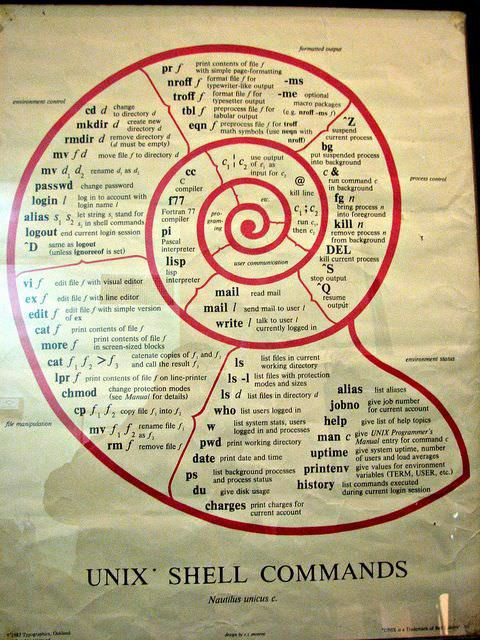 formatted output
pr f print contents of file f
with simple page-formatting
nroff f format file f for
typewriter-like output
-ms
troff f format file f for
typesetter output
-me optional
macro packages
(e.g. nroff -ms f)
tbl f preprocess file f for
tabular output
eqn f preprocess file f for troff
math symbols (use neqn with
nroff)
environment control
cd d change
to directory d
mkdir d create new
directory d
rmdir d remove directory d
(d must be empty)
mv f d move file f to directory d
mv d₁ d₂ rename d₁ as d₂
passwd change password
login l log in to account with
login name l
alias s₁ s₂ let string s₁ stand for
s₂ in shell commands
logout end current login session
^D same as logout
(unless ignoreeof is set)
^Z
suspend
current process
bg
put suspended process
into background
c &
run command c
in background
fg n
bring process n
into foreground
kill n
remove process n
from background
DEL
kill current process
^S
stop output
^Q
resume
output
process control
cc
C
compiler
f77
Fortran 77
compiler
pi
Pascal
interpreter
lisp
lisp
interpreter
pro-
gram-
ing
c₁ ¦ c₂ use output
of c₁ as
input for c₂
etc.
@
kill line
c₁; c₂
run c₁,
then c₂
user communication
mail read mail
mail l send mail to user l
write l talk to user l
currently logged in
vi f edit file f with visual editor
ex f edit file f with line editor
edit f edit file f with simple version
of ex
cat f print contents of file f
more f print contents of file f
in screen-sized blocks
cat f₁ f₂ >f₃ catenate copies of f₁ and f₂
and call the result f₃
lpr f print contents of file f on line-printer
chmod change protection modes
(see Manual for details)
cp f₁ f₂ copy file f₁ into f₂
mv f₁ f₂ rename file f₁
as f₂
rm f remove file f
file manipulation
environment status
ls list files in current
working directory
ls -l list files with protection
modes and sizes
ls d list files in directory d
who list users logged in
w list system stats, users
logged in and processes
pwd print working directory
date print date and time
ps list background processes
and process status
du give disk usage
charges print charges for
current account
alias list aliases
jobno give job number
for current account
help give list of help topics
man c give UNIX Programer's
Manual entry for command c
uptime give system uptime, number
of users and load averages
printenv give values for environment
variables (TERM, USER, etc.)
history list commands executed
during current login session
UNIX* SHELL COMMANDS
Nautilus unicus c.
Typographics, Oakland
design by
*UNIX is a Trademark of Bell